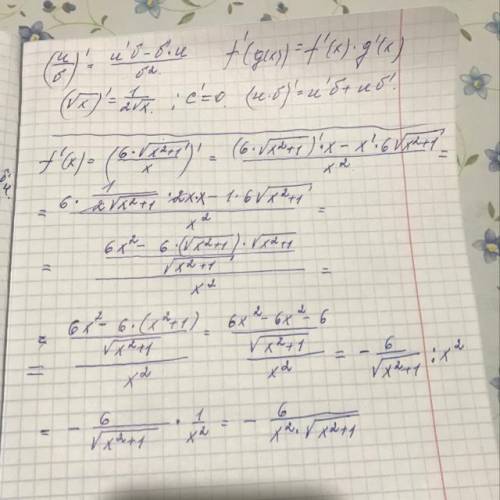 (u/б)' = (u'б - б'·u)/б² f'(g(x)) = f'(x)·g'(x)
(√x)' = 1/(2√x) ; c'=0. (u·б)' = u'б + uб'
f'(x) = (6·√(x²+1)/x)' = ((6·√(x²+1))'·x - x'·6√(x²+1))/x² =
= (6·1/(2√(x²+1))·2x·x - 1·6√(x²+1))/x² =
= ((6x² - 6·(√(x²+1))·√(x²+1))/√(x²+1))/x² =
= ((6x² - 6·(x²+1))/√(x²+1))/x² = ((6x² - 6x² - 6)/√(x²+1))/x² = - 6/√(x²+1) : x²
= - 6/√(x²+1) · 1/x² = - 6/(x²·√(x²+1))